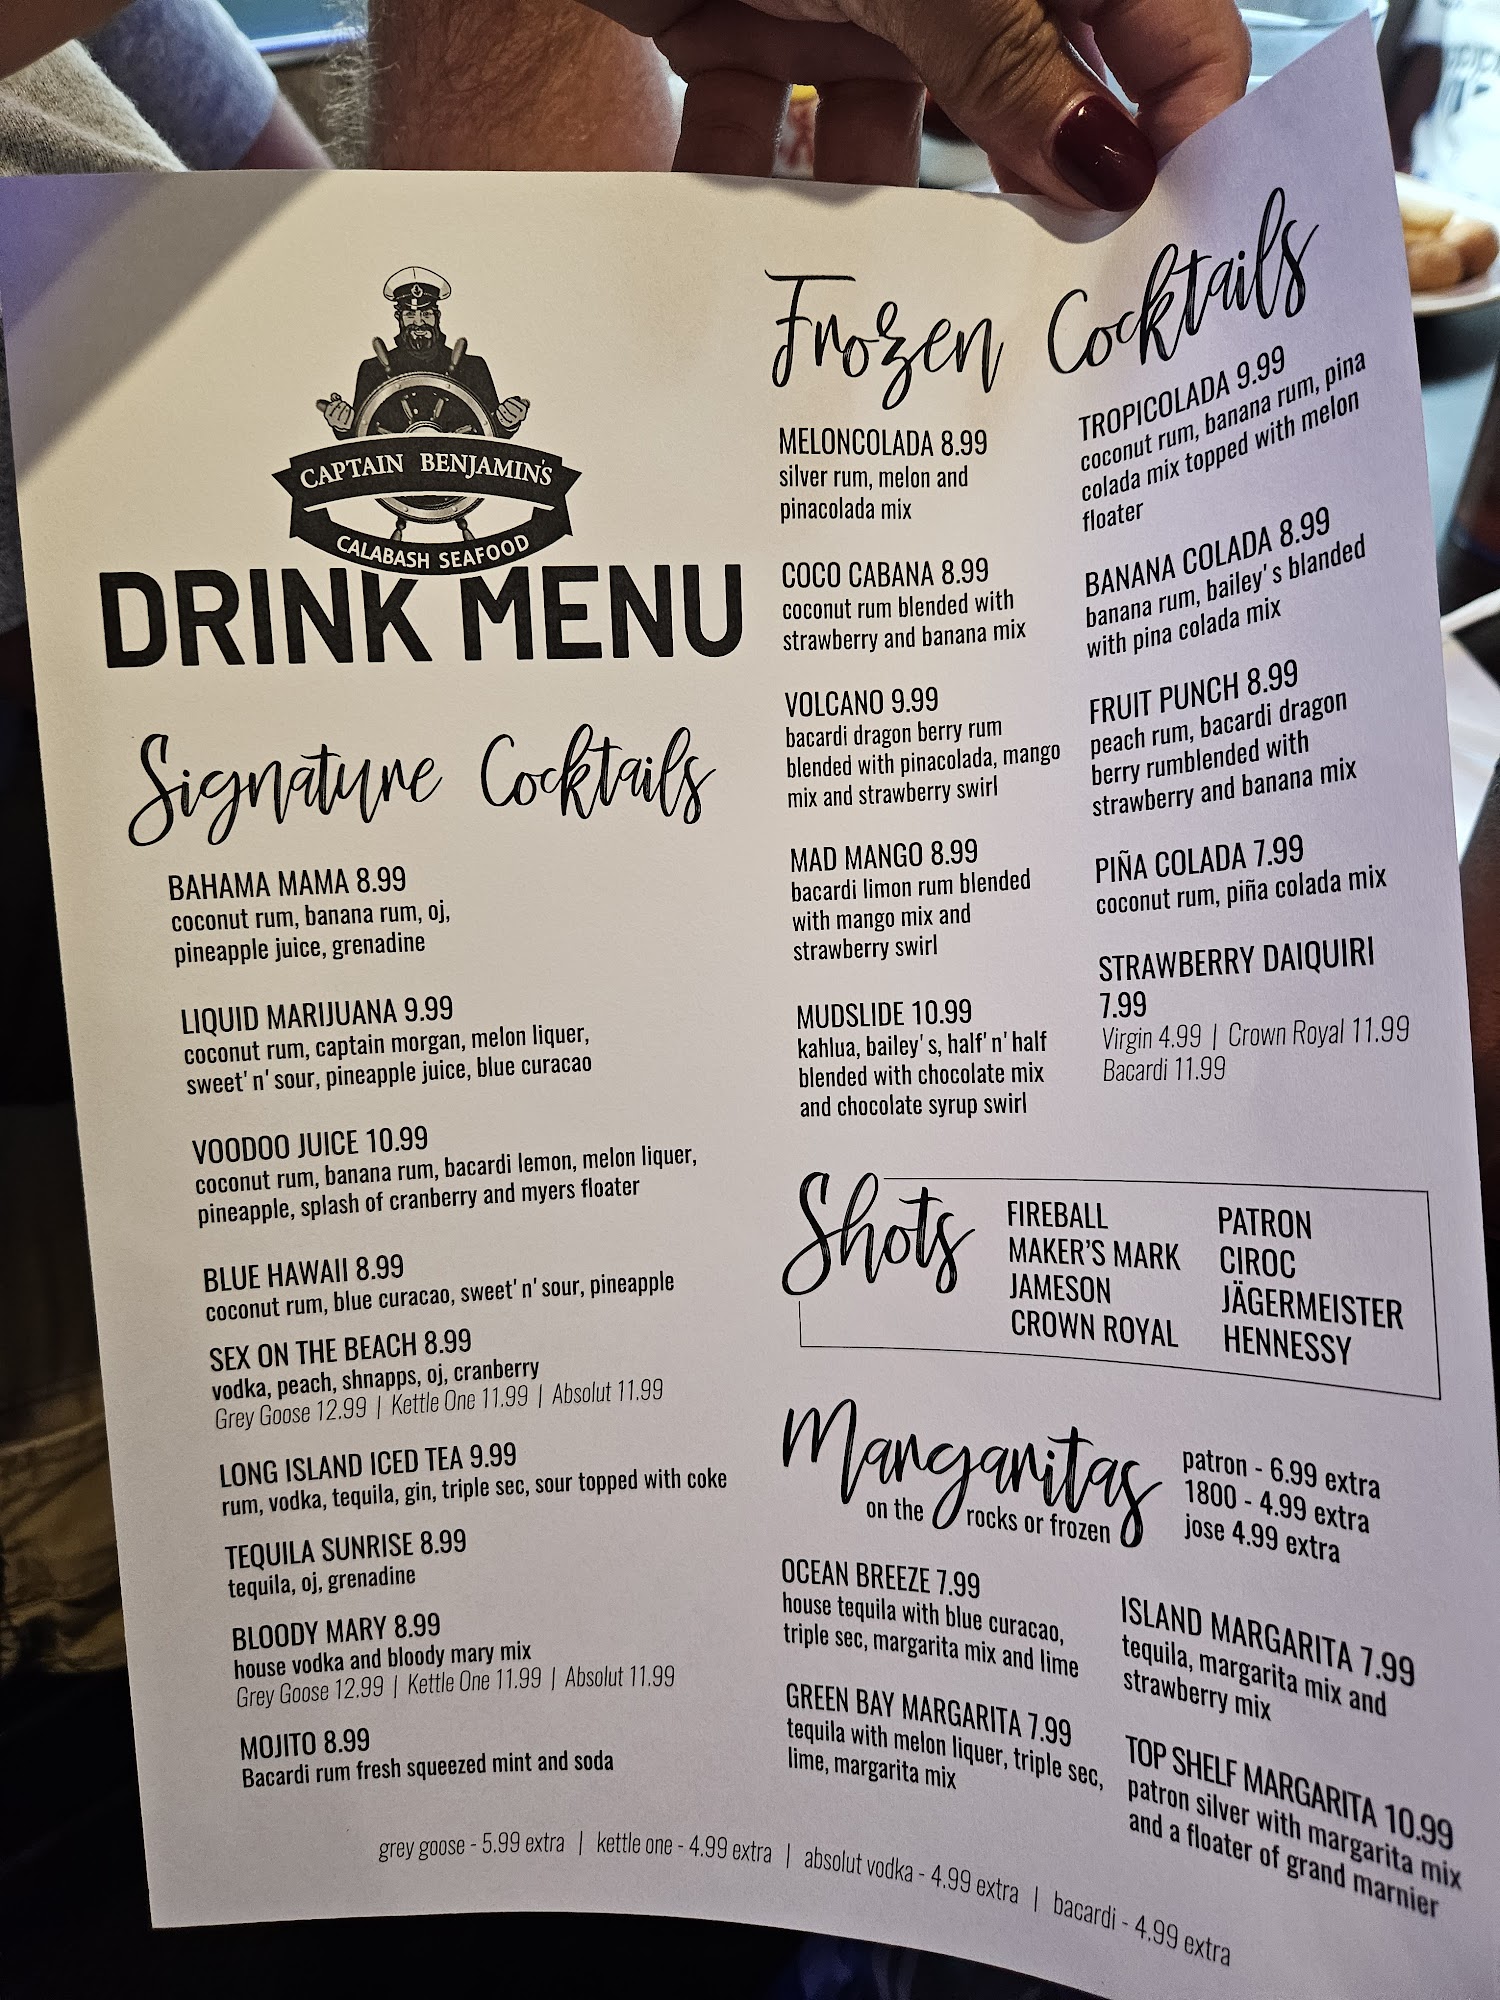 CAPTAIN BENJAMIN'S
CALABASH SEAFOOD
DRINK MENU
Signature Cocktails
BAHAMA MAMA 8.99
coconut rum, banana rum, oj,
pineapple juice, grenadine
LIQUID MARIJUANA 9.99
coconut rum, captain morgan, melon liquer,
sweet' n' sour, pineapple juice, blue curacao
VOODOO JUICE 10.99
coconut rum, banana rum, bacardi lemon, melon liquer,
pineapple, splash of cranberry and myers floater
BLUE HAWAII 8.99
coconut rum, blue curacao, sweet' n' sour, pineapple
SEX ON THE BEACH 8.99
vodka, peach, shnapps, oj, cranberry
Grey Goose 12.99 | Kettle One 11.99 | Absolut 11.99
LONG ISLAND ICED TEA 9.99
rum, vodka, tequila, gin, triple sec, sour topped with coke
TEQUILA SUNRISE 8.99
tequila, oj, grenadine
BLOODY MARY 8.99
house vodka and bloody mary mix
Grey Goose 12.99 | Kettle One 11.99 | Absolut 11.99
MOJITO 8.99
Bacardi rum fresh squeezed mint and soda
Frozen Cocktails
MELONCOLADA 8.99
silver rum, melon and
pinacolada mix
COCO CABANA 8.99
coconut rum blended with
strawberry and banana mix
VOLCANO 9.99
bacardi dragon berry rum
blended with pinacolada, mango
mix and strawberry swirl
MAD MANGO 8.99
bacardi limon rum blended
with mango mix and
strawberry swirl
MUDSLIDE 10.99
kahlua, bailey' s, half' n' half
blended with chocolate mix
and chocolate syrup swirl
TROPICOLADA 9.99
coconut rum, banana rum, pina
colada mix topped with melon
floater
BANANA COLADA 8.99
banana rum, bailey' s blanded
with pina colada mix
FRUIT PUNCH 8.99
peach rum, bacardi dragon
berry rumblended with
strawberry and banana mix
PIÑA COLADA 7.99
coconut rum, piña colada mix
STRAWBERRY DAIQUIRI
7.99
Virgin 4.99 | Crown Royal 11.99
Bacardi 11.99
Shots
FIREBALL
MAKER'S MARK
JAMESON
CROWN ROYAL
PATRON
CIROC
JÄGERMEISTER
HENNESSY
Margaritas
on the rocks or frozen
patron - 6.99 extra
1800 - 4.99 extra
jose 4.99 extra
OCEAN BREEZE 7.99
house tequila with blue curacao,
triple sec, margarita mix and lime
GREEN BAY MARGARITA 7.99
tequila with melon liquer, triple sec,
lime, margarita mix
ISLAND MARGARITA 7.99
tequila, margarita mix and
strawberry mix
TOP SHELF MARGARITA 10.99
patron silver with margarita mix
and a floater of grand marnier
grey goose - 5.99 extra | kettle one - 4.99 extra | absolut vodka - 4.99 extra | bacardi - 4.99 extra